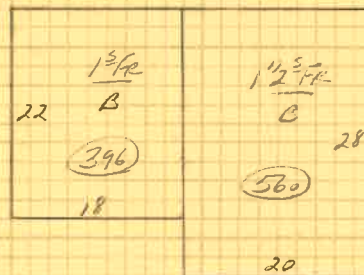 1 S Fr
B
22
396
18
1 1/2 S Fr
28
560
20